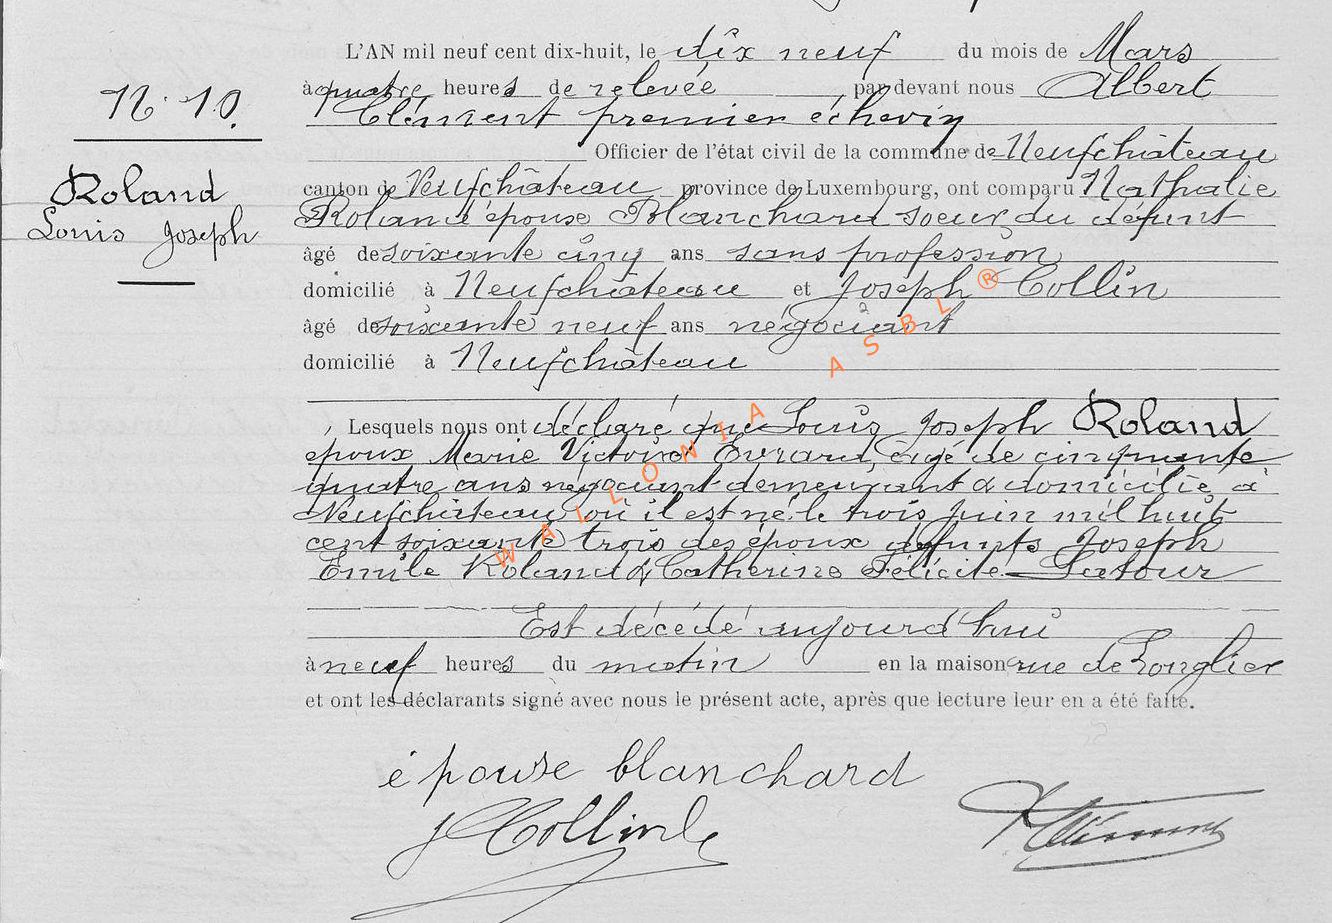 L'AN mil neuf cent dix-huit, le dix neuf du mois de Mars
N° 10.
à quatre heures de relevée, par devant nous Albert
Clément premier échevin
Officier de l'état civil de la commune de Neufchâteau
Roland
Louis Joseph
canton de Neufchâteau province de Luxembourg, ont comparu Nathalie
Roland épouse Blanchard soeur du défunt
âgé de soixante cinq ans sans profession
domicilié à Neufchâteau et Joseph Collin
âgé de soixante neuf ans négociant
domicilié à Neufchâteau
WALLONIA ASBL ®
Lesquels nous ont déclaré que Louis Joseph Roland
époux Marie Victoire Evrard, âgé de cinquante
quatre ans négociant demeurant & domicilié à
Neufchâteau où il est né le trois juin mil huit
cent soixante trois des époux défunts Joseph
Emile Roland & Catherine Félicité Latour
Est décédé aujourd'hui
à neuf heures du matin en la maison rue de Longlier
et ont les déclarants signé avec nous le présent acte, après que lecture leur en a été faite.
épouse blanchard
J Collin